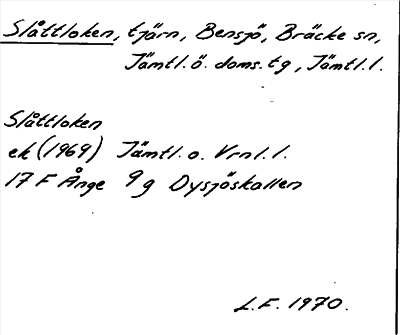 Slåttloken, tjärn, Bensjö, Bräcke sn,
Jämtl. ö. doms. tg, Jämtl. l.
Slåttloken
ek (1969) Jämtl. o. Vrnl. l.
17 F Ånge 9 g Dysjöskallen
L.F. 1970.